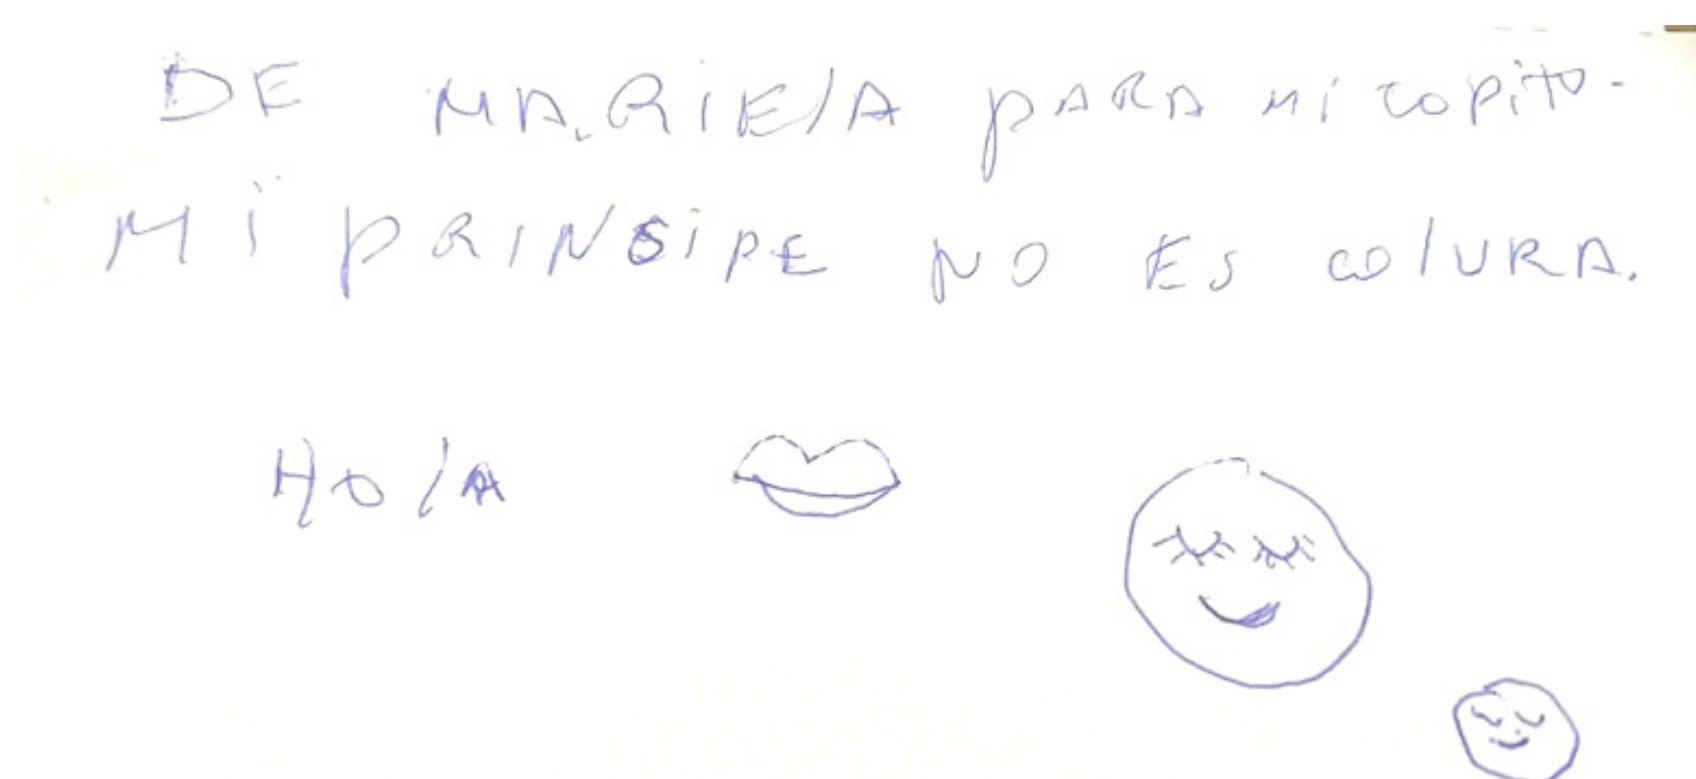 DE MA.RiElA pARA Mi COPiTO.
Mi pRINSiPE NO ES COlURA.
HOlA